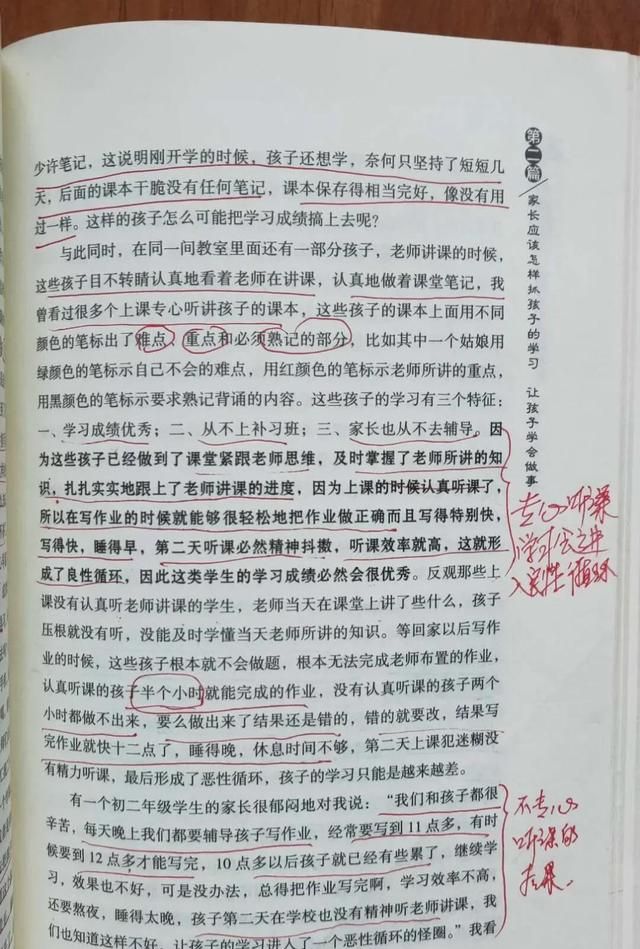 少许笔记，这说明刚开学的时候，孩子还想学，奈何只坚持了短短几
天，后面的课本干脆没有任何笔记，课本保存得相当完好，像没有用
过一样。这样的孩子怎么可能把学习成绩搞上去呢？
与此同时，在同一间教室里面还有一部分孩子，老师讲课的时候，
这些孩子目不转睛认真地看着老师在讲课，认真地做着课堂笔记，我
曾看过很多个上课专心听讲孩子的课本，这些孩子的课本上面用不同
颜色的笔标出了难点、重点和必须熟记的部分，比如其中一个姑娘用
绿颜色的笔标示自己不会的难点，用红颜色的笔标示老师所讲的重点，
用黑颜色的笔标示要求熟记背诵的内容。这些孩子的学习有三个特征：
一、学习成绩优秀；二、从不上补习班；三、家长也从不去辅导。因
为这些孩子已经做到了课堂紧跟老师思维，及时掌握了老师所讲的知
识，扎扎实实地跟上了老师讲课的进度，因为上课的时候认真听课了，
所以在写作业的时候就能够很轻松地把作业做正确而且写得特别快，
写得快，睡得早，第二天听课必然精神抖擞，听课效率就高，这就形
成了良性循环，因此这类学生的学习成绩必然会很优秀。反观那些上
课没有认真听老师讲课的学生，老师当天在课堂上讲了些什么，孩子
压根就没有听，没能及时学懂当天老师所讲的知识。等回家以后写作
业的时候，这些孩子根本就不会做题，根本无法完成老师布置的作业，
认真听课的孩子半个小时就能完成的作业，没有认真听课的孩子两个
小时都做不出来，要么做出来了结果还是错的，错的就要改，结果写
完作业就快十二点了，睡得晚，休息时间不够，第二天上课犯迷糊没
有精力听课，最后形成了恶性循环，孩子的学习只能是越来越差。
有一个初二年级学生的家长很郁闷地对我说：“我们和孩子都很
辛苦，每天晚上我们都要辅导孩子写作业，经常要写到11点多，有时
候要到12点多才能写完，10点多以后孩子就已经有些累了，继续学
习，效果也不好，可是没办法，总得把作业写完啊，学习效率不高，
还要熬夜，睡得太晚，孩子第二天在学校也没有精神听老师讲课，我
们也知道这样不好，让孩子的学习进入了一个恶性循环的怪圈。”我看
第二篇
家长应该怎样抓孩子的学习 让孩子学会做事
专心听课
学习会进
入良性循环
不专心
听课的
后果